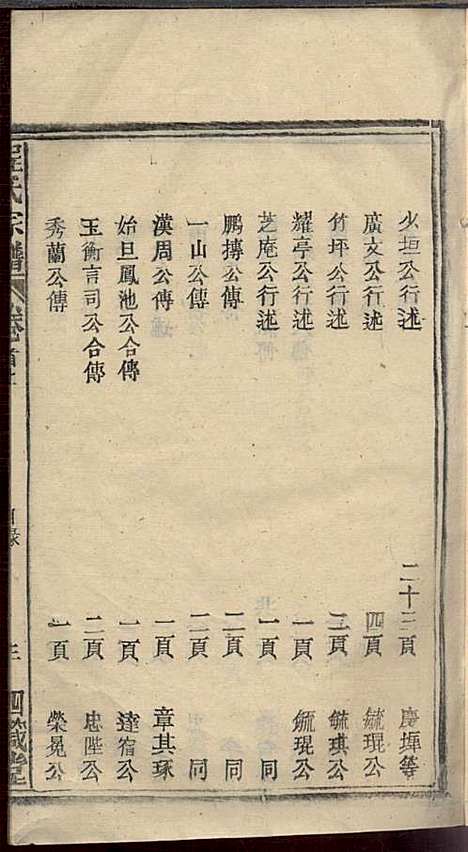 少垣公行述 二十三頁 慶墀等
廣文公行述 四頁 毓琨公
竹坪公行述 二頁 毓琪公
耀亭公行述 一頁 毓琨公
芝庵公行述 一頁 仝同
鵬摶公傳 二頁 仝同
一山公傳 二頁 仝同
漢周公傳 一頁 章其琢
始旦鳳池公合傳 一頁 達宿公
玉衡言司公合傳 二頁 忠陛公
秀蘭公傳 一頁 榮冕公
氏宗譜 卷首上 目錄 三 四箴堂